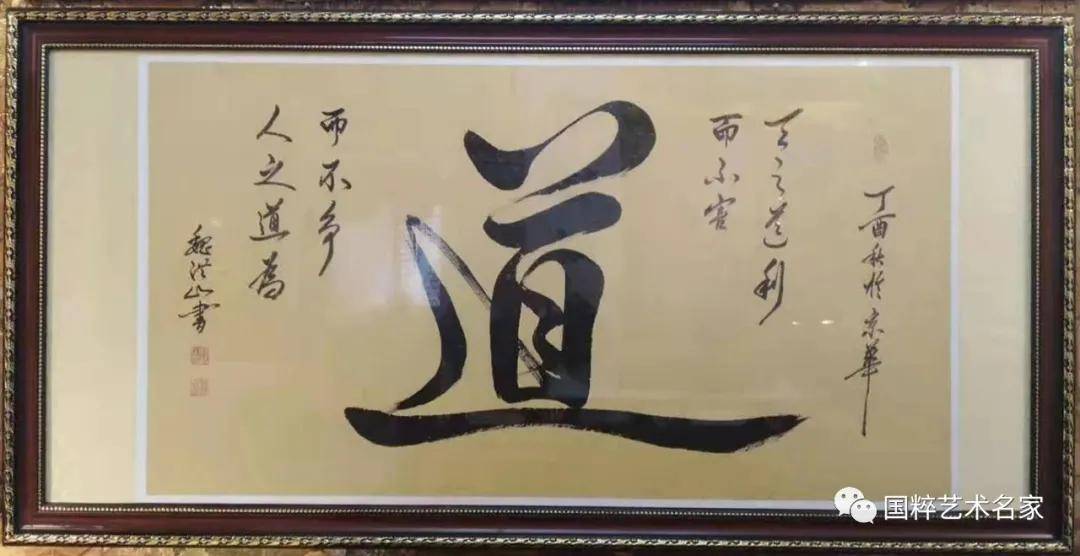 丁酉秋於京華
天之道利
而不害
道
而不争
人之道為
魏洪山書
国粹艺术名家